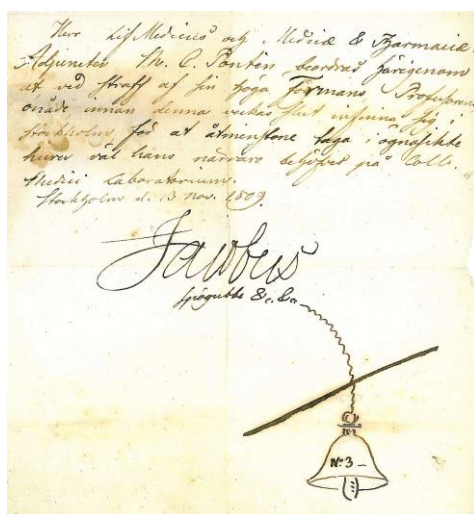 Herr Lif Medicus och Medicinæ & Pharmaciæ
Adjuncten M. C. Pontin beordras härigenom
at vid straff af sin höga Formans Professorns
onåde innan denna veckas slut infinna sig i
Stockholm, för at åtminstone taga i ögnasikte
huru väl hans närvaro behöfves på Coll.
Medici Laboratorium.
Stockholm d. 13 Nov. 1809.
Jacobus
&c. &c.
No 3 –